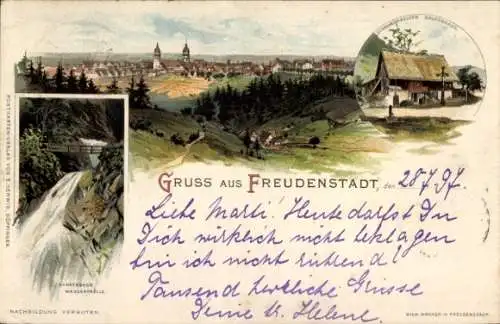 SCHWARZWÄLDER BAUERNHAUS
POSTKARTEN-VERLAG VON
GRUSS AUS FREUDENSTADT, den 28 7. 97.
Liebe Marti! Heute darfst Du
Dich wirklich nicht beklagen
bin ich nicht rührend!
Tausend herzliche Grüsse
Deine Helene.
SANKENBACH
WASSERFÄLLE.
NACHBILDUNG VERBOTEN.
IN FREUDENSTADT